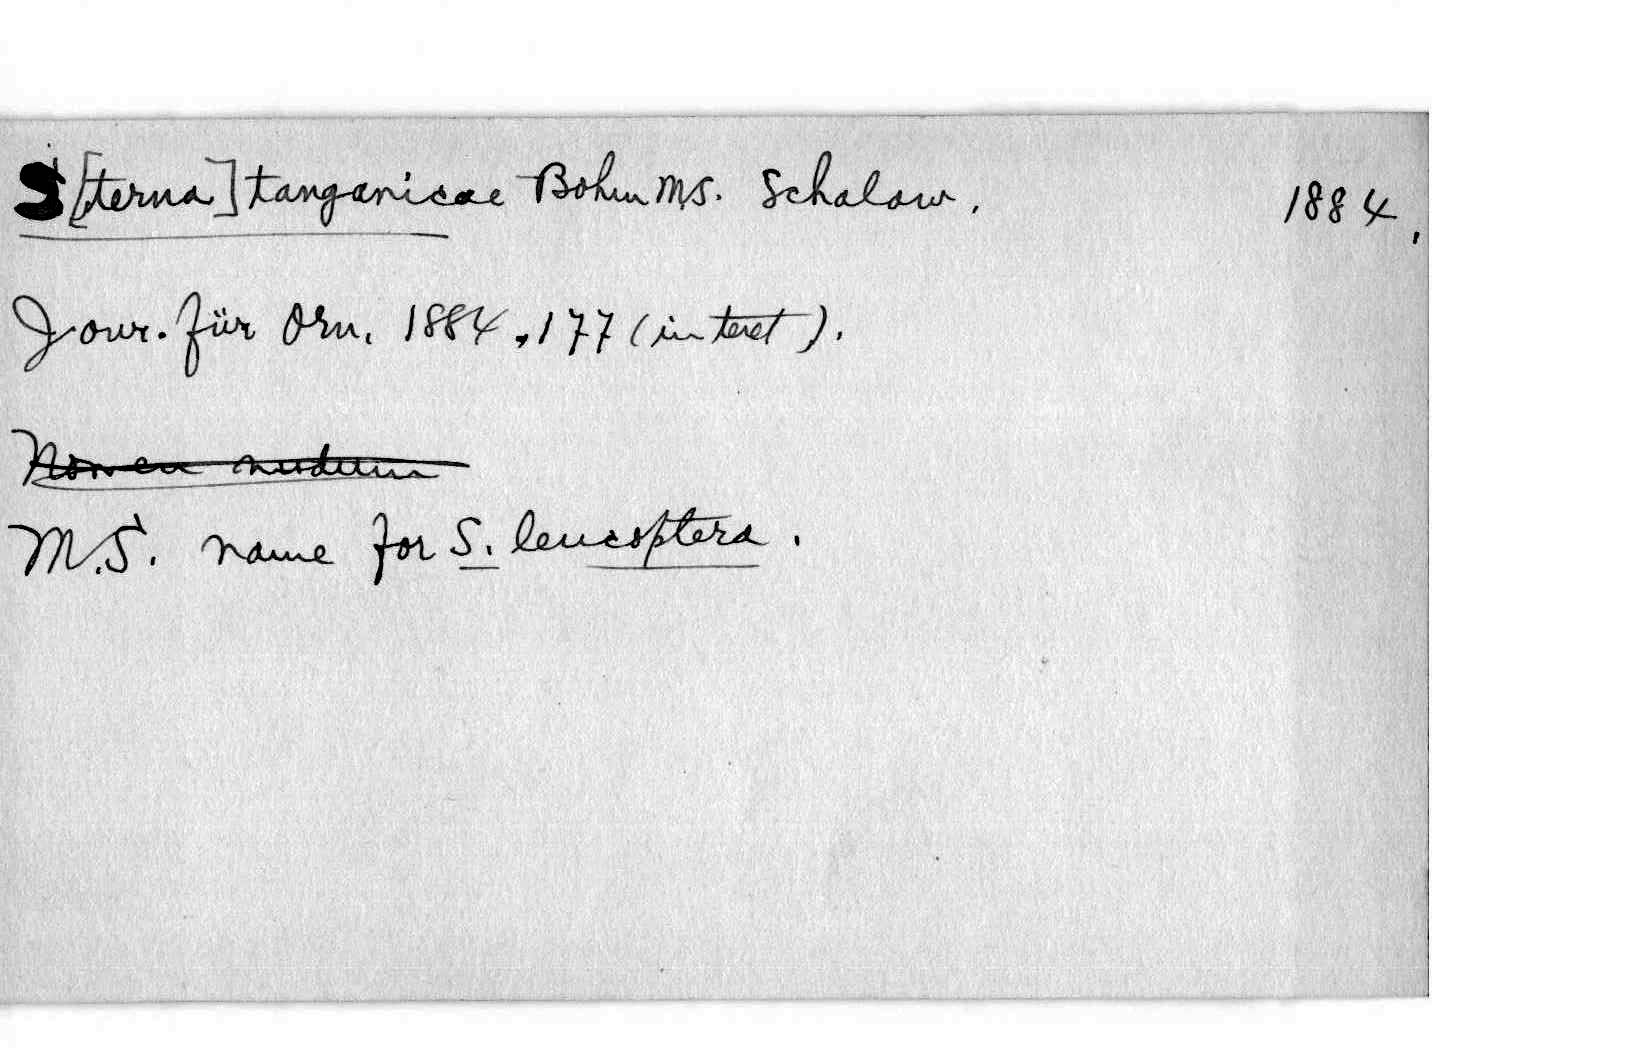 S[terna] tanganicae Bohm MS. Schalow. 1884.
Jour. für Orn. 1884, 177 (in text).
Nomen nudum
M.S. name for S. leucoptera.